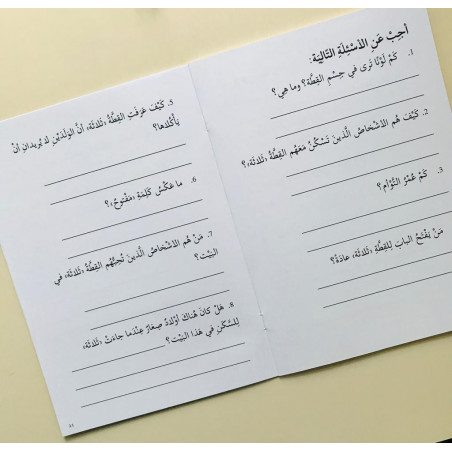 أَجِبْ عَنِ الأَسْئِلَةِ التَّالِيَة:
1. كَمْ لَوْنًا تَرى في جِسْمِ القِطَّة؟ وما هِي؟
2. كَيْفَ هُم الأشْخاصُ الَّذينَ تَسْكُنُ مَعَهُم القِطَّةُ «ثَلاثَة»؟
3. كَمْ عُمْرُ التَّوْأَم؟
مَنْ يَفْتَحُ البابَ لِلقِطَّةِ «ثَلاثَة» عادَةً؟
5. كَيْفَ عَرَفَتِ القِطَّةُ «ثَلاثَة» أنَّ الوَلَدَيْنِ لا يُريدانِ أنْ
يَأْكُلاها؟
6. ما عَكْسُ كَلِمَةِ «مَفْتوح»؟
7. مَنْ هُم الأشْخاصُ الَّذينَ تُحِبُّهُم القِطَّةُ «ثَلاثَة» في
البَيْت؟
8. هَلْ كانَ هُناكَ أوْلادٌ صِغارٌ عِنْدَما جاءَتْ «ثَلاثَة»
لِلسَّكَنِ في هَذا البَيْت؟